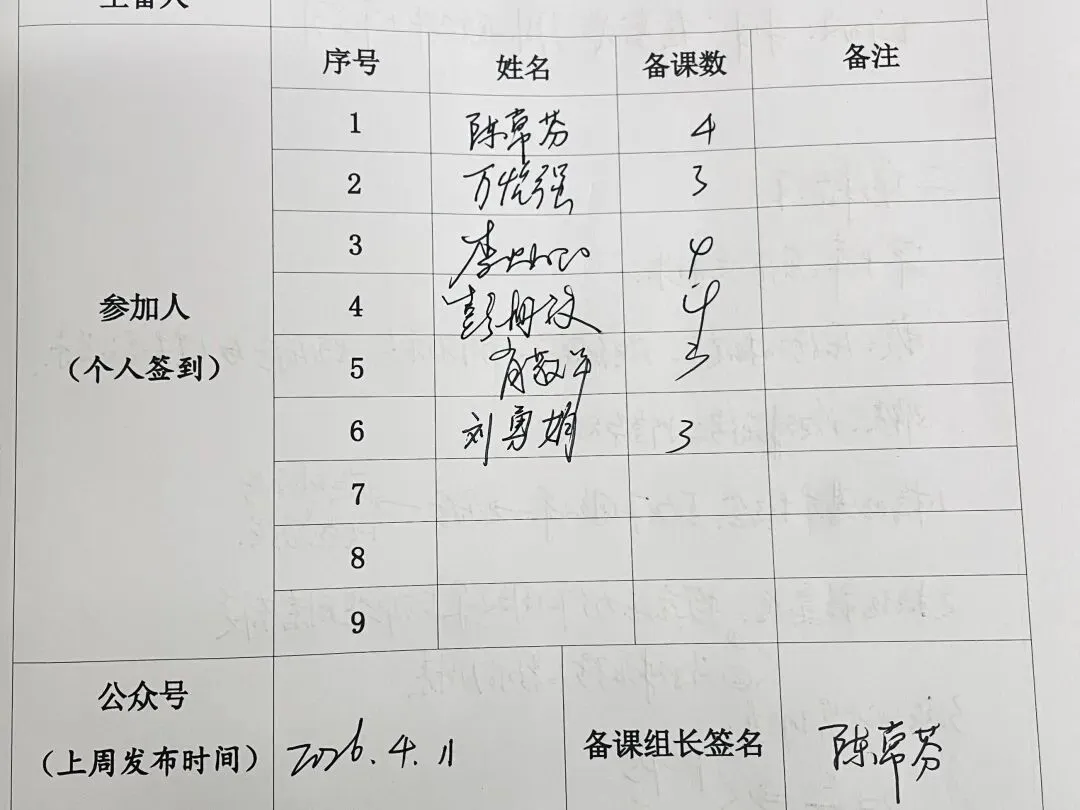 主备人
序号 姓名 备课数 备注
1 陈常芬 4
2 万悦强 3
3 李 4
4 彭丹 4
5 肖敬平 3
6 刘勇娟 3
7
8
9
参加人
（个人签到）
公众号
（上周发布时间）
2026.4.11
备课组长签名
陈常芬